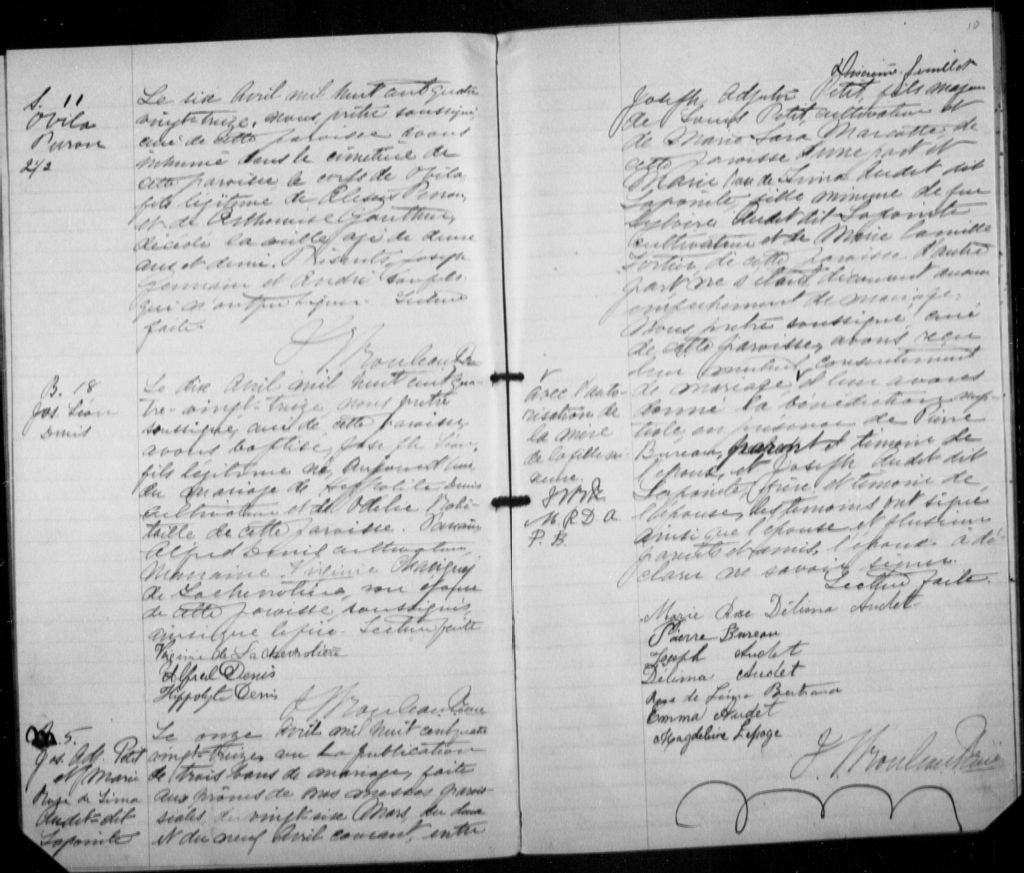 S. 11
Ovila
Perron
2 1/2
Le six Avril mil huit cent quatre
vingt-treize, nous prêtre soussigné
curé de cette paroisse avons
inhumé dans le cimetière de
cette paroisse le corps de Ovila
fils légitime de Perron
et de Gauthier
décédé la veille, agé de deux
ans et demi. Présents, Joseph
Germain et André
qui n'ont pu signer. Lecture
faite.
B. 18
Jos. Léon
Denis
Le dix Avril mil huit cent qua-
tre-vingt-treize, nous prêtre
soussigné, curé de cette paroisse,
avons baptisé, Joseph Léon,
fils légitime né, aujourd'hui
du mariage de Hippolite Denis
cultivateur et de Odélie Robi-
taille de cette paroisse. Parrain
Alfred Denis cultivateur,
Marraine Virginie
de Lachevrotière, son épouse
de cette paroisse, soussignés,
ainsi que le père. Lecture faite
Virginie de Lachevrotière
Alfred Denis
Hippolyte Denis
5.
Jos. Adj. Petit
et Marie
Rose de Lima
Audet dit
Lapointe
Le onze Avril mil huit cent quatre
vingt-treize, vu la publication
de trois bans de mariage, faite
aux prônes de nos messes parois-
siales, du vingt-six Mars, du deux
et du neuf Avril courant, entre
10
feuillet
Joseph Adjutor Petit, fils majeur
de Louis Petit, cultivateur et
de Marie Sara Marcotte de
cette paroisse d'une part et
Marie Rose de Lima Audet dit
Lapointe, fille mineure de feu
Audet dit Lapointe
cultivateur et de Marie Camille
Fortier, de cette paroisse d'autre
part ne s'étant découvert aucun
empêchement de mariage,
Nous prêtre soussigné, curé
de cette paroisse, avons reçu
leur mutuel consentement
de mariage, et leur avons
donné la bénédiction nup-
tiale, en présence de Pierre
Bureau, et témoin de
l'époux, et Joseph Audet dit
Lapointe, frère et témoin de
l'épouse, les témoins ont signé
ainsi que l'épouse et plusieurs
parents et amis, l'époux a dé-
claré ne savoir signer.
Lecture faite.
avec l'auto-
risation de
la mère
de la fille mi-
neure.
M. R. D. A.
P. B.
Marie Rose Délima Audet
Pierre Bureau
Joseph Audet
Délima Audet
Rose de Lima Bertrand
Emma Audet
Magdeleine Lepage